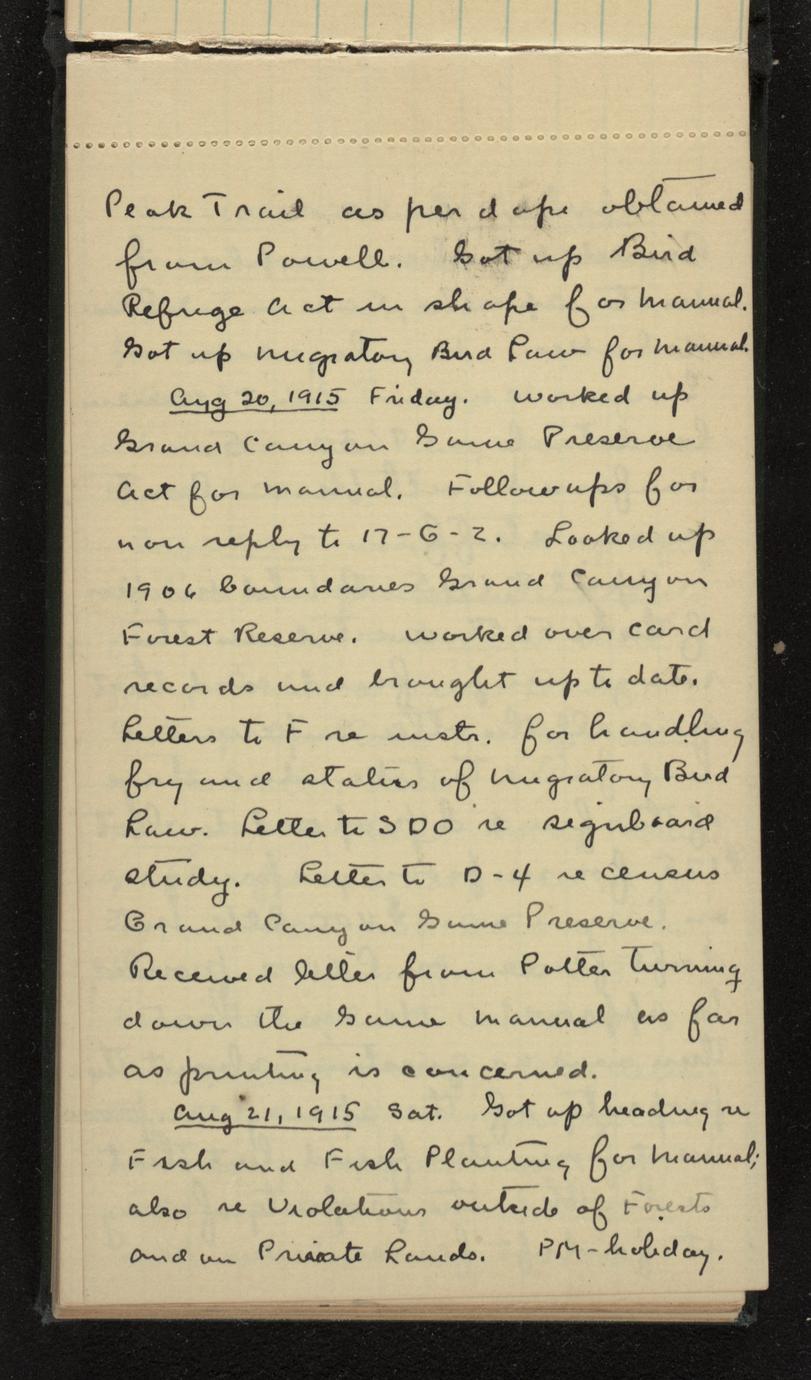 Peak Trail as per dope obtained
from Powell. Got up Bird
Refuge Act in shape for Manual.
Got up Migratory Bird Law for Manual.
Aug 20, 1915 Friday. Worked up
Grand Canyon Game Preserve
Act for Manual. Followups for
non reply to 17-G-2. Looked up
1906 boundaries Grand Canyon
Forest Reserve. Worked over card
records and brought up to date.
Letters to F re instr. for handling
fry and status of Migratory Bird
Law. Letter to SDO re signboard
study. Letter to D-4 re census
Grand Canyon Game Preserve.
Received letter from Potter turning
down the Game Manual as far
as printing is concerned.
Aug 21, 1915 Sat. Got up heading re
Fish and Fish Planting for Manual;
also re Violations outside of Forests
and on Private Lands. PM-holiday.